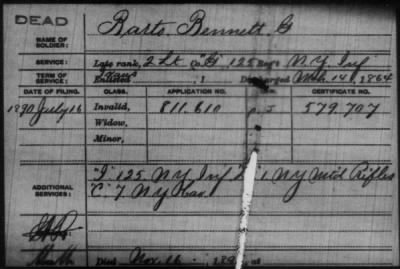 DEAD
NAME OF SOLDIER: Barto, Bennett G
SERVICE: Late rank, 2 Lt Co. G, 125 Reg't N.Y. Inf
TERM OF SERVICE: Enlisted Discharged Mch 14, 1864
DATE OF FILING. CLASS. APPLICATION NO. CERTIFICATE NO.
1890 July 16 Invalid, 811.610 579.707
Widow,
Minor,
ADDITIONAL SERVICES: 125 N.Y. Inf 1 N.Y. Mtd Rifles
"C" 7 N.Y.
Died Nov. 16 189 at